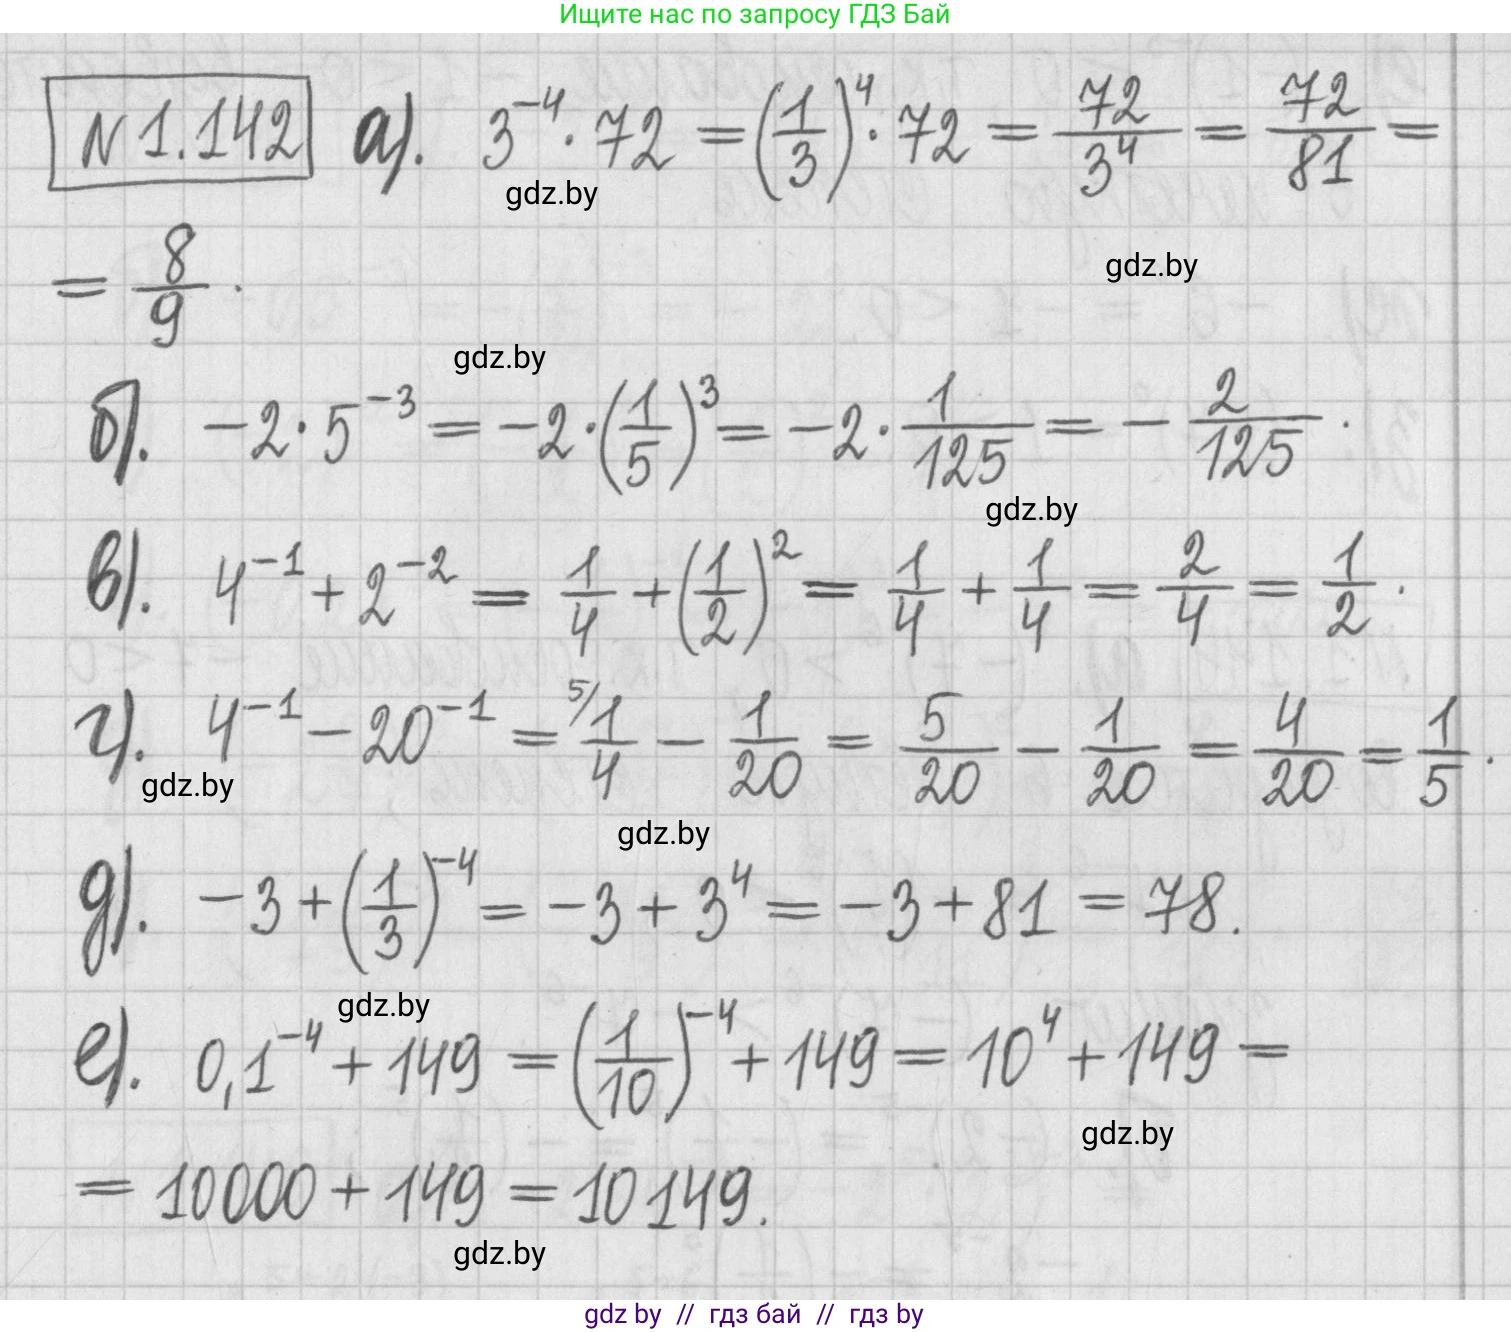 Ищите нас по запросу ГДЗ Бай
N 1.142 а). 3^{-4} · 72 = (1/3)^4 · 72 = 72/3^4 = 72/81 =
gdz.by
= 8/9 .
gdz.by
gdz.by
б). -2 · 5^{-3} = -2 · (1/5)^3 = -2 · 1/125 = - 2/125 .
gdz.by
в). 4^{-1} + 2^{-2} = 1/4 + (1/2)^2 = 1/4 + 1/4 = 2/4 = 1/2 .
г). 4^{-1} - 20^{-1} = ^{5/} 1/4 - 1/20 = 5/20 - 1/20 = 4/20 = 1/5 .
gdz.by
gdz.by
д). -3 + (1/3)^{-4} = -3 + 3^4 = -3 + 81 = 78.
gdz.by
е). 0,1^{-4} + 149 = (1/10)^{-4} + 149 = 10^4 + 149 =
gdz.by
= 10000 + 149 = 10149.
gdz.by
gdz by // гдз бай // гдз by